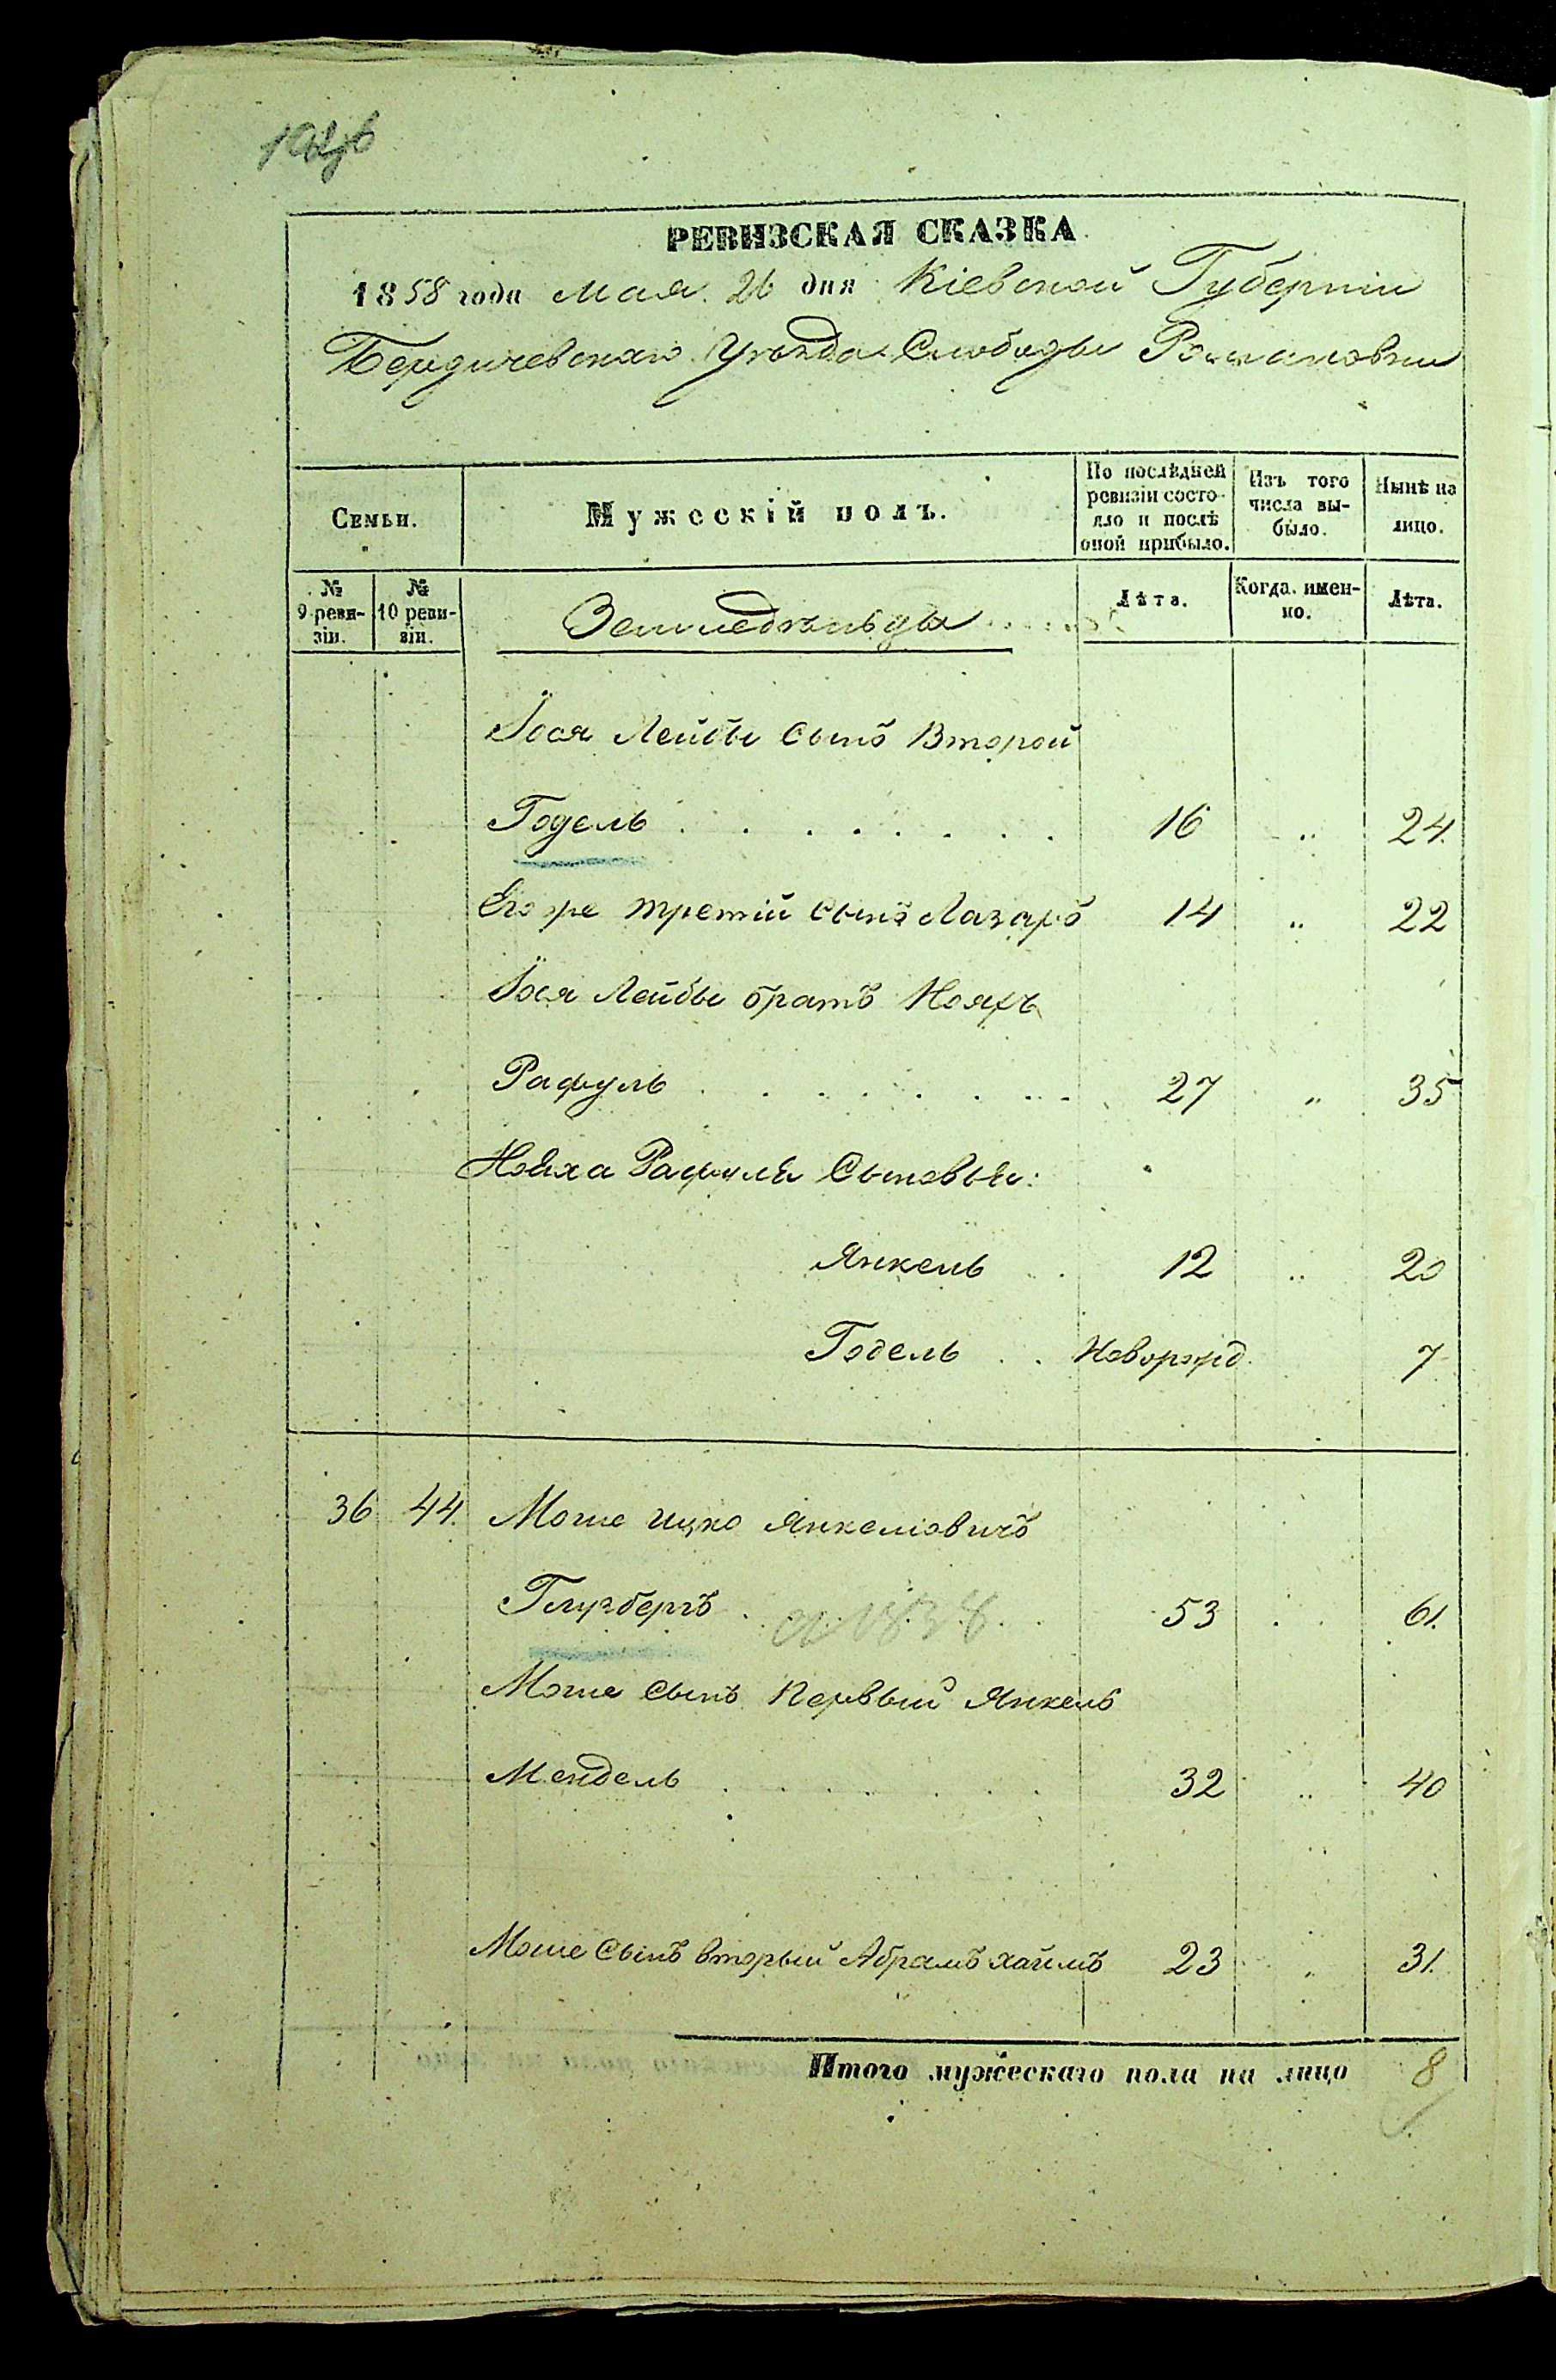 РЕВИЗСКАЯ СКАЗКА
1858 года Мая 26 дня Кіевской Губерніи
Бердичевскаго Уѣзда Слободы Романовки
Семьи.
Мужескій полъ.
По послѣдней ревизіи состояло и послѣ оной прибыло.
Изъ того числа выбыло.
Нынѣ на лицо.
№ 9 ревизіи.
№ 10 ревизіи.
Земледѣльцы
Лѣта.
Когда именно.
Лѣта.
Іося Лейбы сынъ Второй
Годель 16 „ 24
Его же третій сынъ Лазарь 14 „ 22
Іося Лейбы братъ Нояхъ
Рафуль 27 „ 35
Нояха Рафуля Сыновья:
Янкель 12 „ 20
Годель Новорожд. 7
36 44. Моше Ицко Янкеліовичъ
Глузбергъ 53 61.
Моше сынъ Первый Янкель
Мендель 32 „ 40
Моше Сынъ вторый Абрамъ Хаимъ 23 „ 31.
Итого мужескаго пола на лицо 8